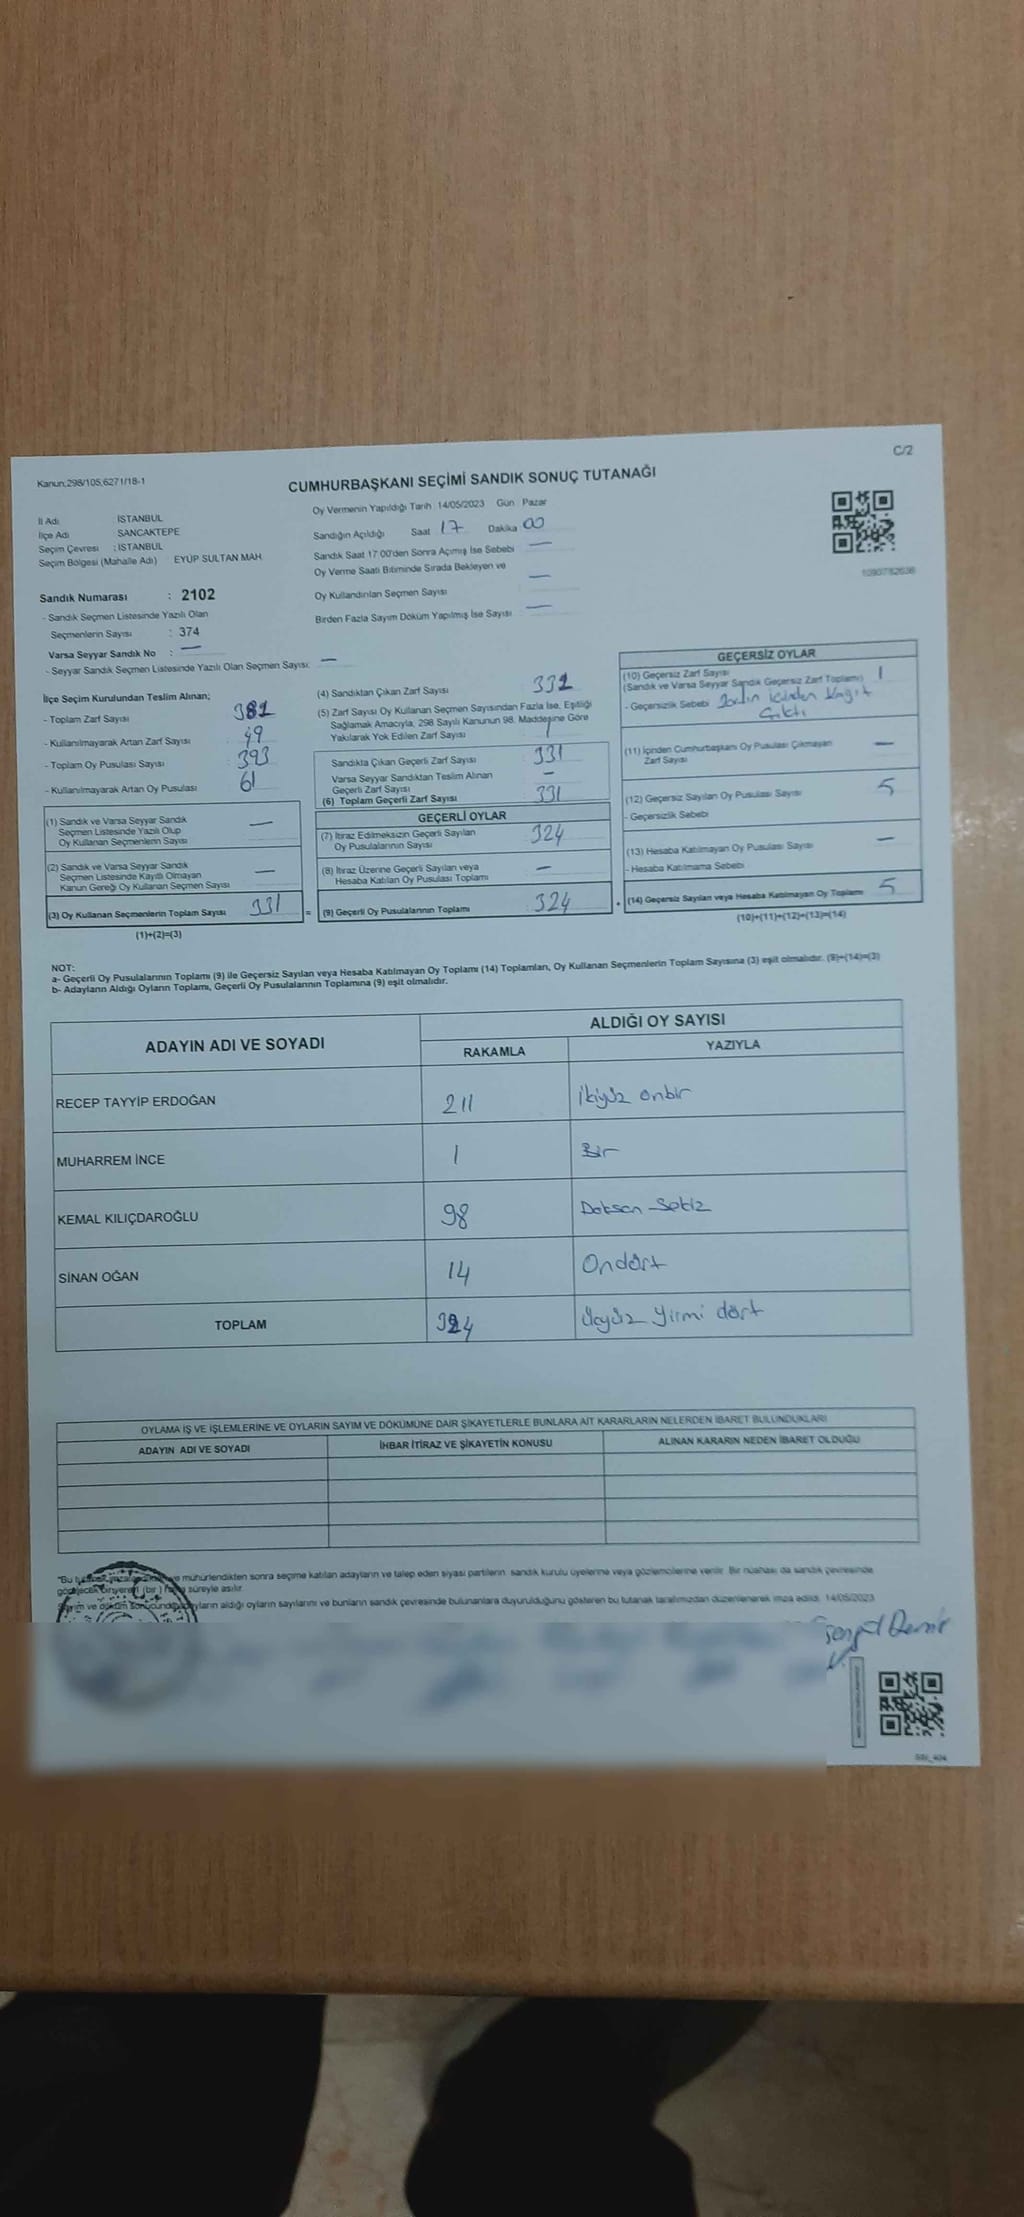 C/2
Kanun,298/105,6271/18-1
CUMHURBAŞKANI SEÇİMİ SANDIK SONUÇ TUTANAĞI
İl Adı İSTANBUL
İlçe Adı SANCAKTEPE
Seçim Çevresi : İSTANBUL
Seçim Bölgesi (Mahalle Adı) EYÜP SULTAN MAH.
Sandık Numarası : 2102
- Sandık Seçmen Listesinde Yazılı Olan
Seçmenlerin Sayısı : 374
Varsa Seyyar Sandık No : —
- Seyyar Sandık Seçmen Listesinde Yazılı Olan Seçmen Sayısı: —
Oy Vermenin Yapıldığı Tarih 14/05/2023 Gün Pazar
Sandığın Açıldığı Saat 17 Dakika 00
Sandık Saat 17:00'den Sonra Açımış İse Sebebi —
Oy Verme Saati Bitiminde Sırada Bekleyen ve
Oy Kullandırılan Seçmen Sayısı —
Birden Fazla Sayım Döküm Yapılmış İse Sayısı —
1090782638
İlçe Seçim Kurulundan Teslim Alınan;
- Toplam Zarf Sayısı 381
- Kullanılmayarak Artan Zarf Sayısı 49
- Toplam Oy Pusulası Sayısı 393
- Kullanılmayarak Artan Oy Pusulası 61
(1) Sandık ve Varsa Seyyar Sandık
Seçmen Listesinde Yazılı Olup
Oy Kullanan Seçmenlerin Sayısı —
(2) Sandık ve Varsa Seyyar Sandık
Seçmen Listesinde Kayıtlı Olmayan
Kanun Gereği Oy Kullanan Seçmen Sayısı —
(3) Oy Kullanan Seçmenlerin Toplam Sayısı 331 =
(1)+(2)=(3)
(4) Sandıktan Çıkan Zarf Sayısı 332
(5) Zarf Sayısı Oy Kullanan Seçmen Sayısından Fazla İse, Eşitliği
Sağlamak Amacıyla, 298 Sayılı Kanunun 98. Maddesine Göre
Yakılarak Yok Edilen Zarf Sayısı 1
Sandıkta Çıkan Geçerli Zarf Sayısı 331
Varsa Seyyar Sandıktan Teslim Alınan
Geçerli Zarf Sayısı —
(6) Toplam Geçerli Zarf Sayısı 331
GEÇERLİ OYLAR
(7) İtiraz Edilmeksizin Geçerli Sayılan
Oy Pusulalarının Sayısı 324
(8) İtiraz Üzerine Geçerli Sayılan veya
Hesaba Katılan Oy Pusulası Toplamı —
(9) Geçerli Oy Pusulalarının Toplamı 324
GEÇERSİZ OYLAR
(10) Geçersiz Zarf Sayısı 1
(Sandık ve Varsa Seyyar Sandık Geçersiz Zarf Toplamı)
- Geçersizlik Sebebi Zarfın içinden Kağıt
Çıktı
(11) İçinden Cumhurbaşkanı Oy Pusulası Çıkmayan
Zarf Sayısı —
(12) Geçersiz Sayılan Oy Pusulası Sayısı 5
- Geçersizlik Sebebi
(13) Hesaba Katılmayan Oy Pusulası Sayısı —
- Hesaba Katılmama Sebebi
(14) Geçersiz Sayılan veya Hesaba Katılmayan Oy Toplamı 5
(10)+(11)+(12)+(13)=(14)
NOT:
a- Geçerli Oy Pusulalarının Toplamı (9) ile Geçersiz Sayılan veya Hesaba Katılmayan Oy Toplamı (14) Toplamları, Oy Kullanan Seçmenlerin Toplam Sayısına (3) eşit olmalıdır. (9)+(14)=(3)
b- Adayların Aldığı Oyların Toplamı, Geçerli Oy Pusulalarının Toplamına (9) eşit olmalıdır.
ADAYIN ADI VE SOYADI ALDIĞI OY SAYISI
RAKAMLA YAZIYLA
RECEP TAYYİP ERDOĞAN 211 İkiyüz onbir
MUHARREM İNCE 1 Bir
KEMAL KILIÇDAROĞLU 98 Doksan Sekiz
SİNAN OĞAN 14 Ondört
TOPLAM 324 Üçyüz Yirmi dört
OYLAMA İŞ VE İŞLEMLERİNE VE OYLARIN SAYIM VE DÖKÜMÜNE DAİR ŞİKAYETLERLE BUNLARA AİT KARARLARIN NELERDEN İBARET BULUNDUKLARI
ADAYIN ADI VE SOYADI İHBAR İTİRAZ VE ŞİKAYETİN KONUSU ALINAN KARARIN NEDEN İBARET OLDUĞU
"Bu mühürlendikten sonra seçime katılan adayların ve talep eden siyasi partilerin sandık kurulu üyelerine veya gözlemcilerine verilir. Bir nüshası da sandık çevresinde
(bir) süreyle asılır.
ve döküm aldığı oyların sayılarını ve bunların sandık çevresinde bulunanlara duyurulduğunu gösteren bu tutanak tarafımızdan düzenlenerek imza edildi. 14/05/2023
Şengül Demir